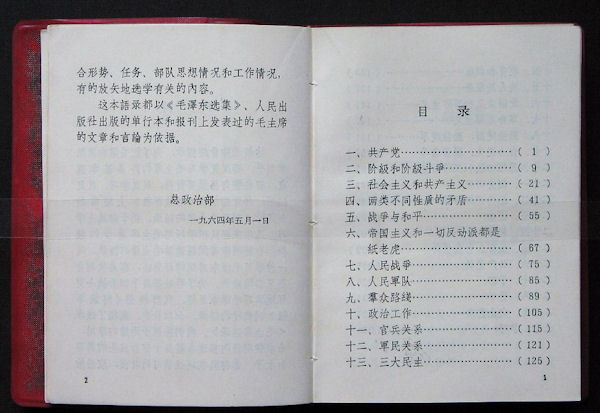 合形势、任务、部队思想情况和工作情况,
有的放矢地选学有关的內容。
这本語录都以《毛澤东选集》、人民出
版社出版的单行本和报刊上发表过的毛主席
的文章和言論为依据。
总政治部
一九六四年五月一日
2
目 录
一、共产党………………………( 1 )
二、阶級和阶級斗爭………………( 9 )
三、社会主义和共产主义…………( 21 )
四、两类不同性质的矛盾…………( 41 )
五、战爭与和平……………………( 55 )
六、帝国主义和一切反动派都是
紙老虎…………………………( 67 )
七、人民战爭………………………( 75 )
八、人民軍队………………………( 85 )
九、羣众路綫………………………( 89 )
十、政治工作………………………( 105 )
十一、官兵关系……………………( 115 )
十二、軍民关系……………………( 121 )
十三、三大民主……………………( 125 )
1